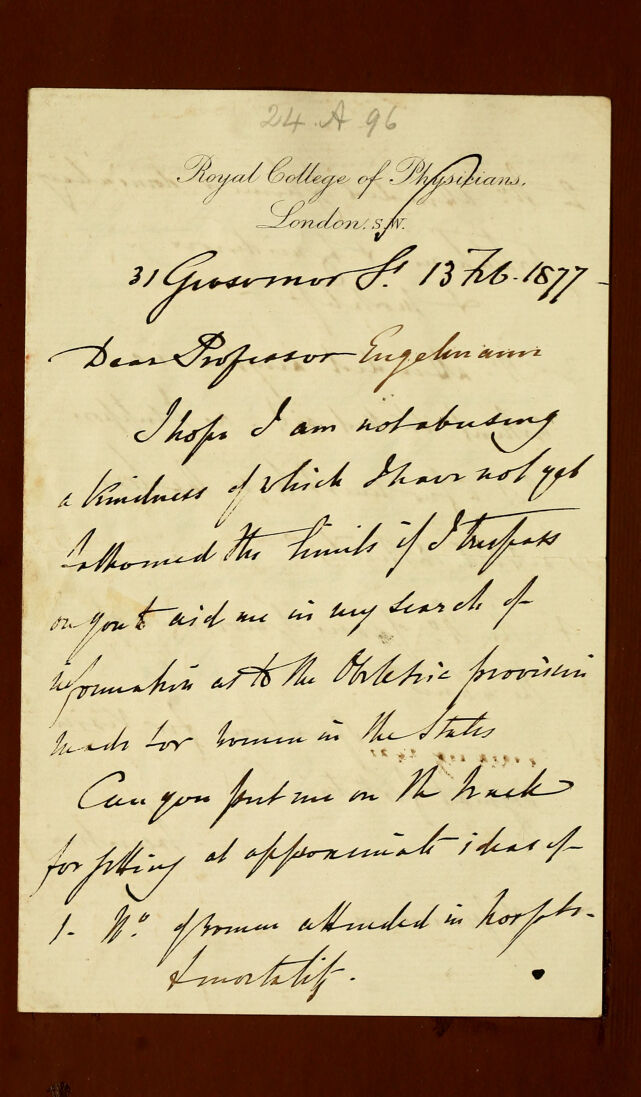 24. A 96
Royal College of Physicians,
London. S.W.
31 Grosvenor St. 13 Feb. 1877
Dear Professor Engelmann
I hope I am not abusing
a kindness of which I have not yet
fathomed the limits if I trespass
on you to aid me in my search of
information as to the Obstetric provision
made for women in the States
Can you put me on the track
for getting at approximate ideas of
1. No. of women attended in hospts.
& mortality.